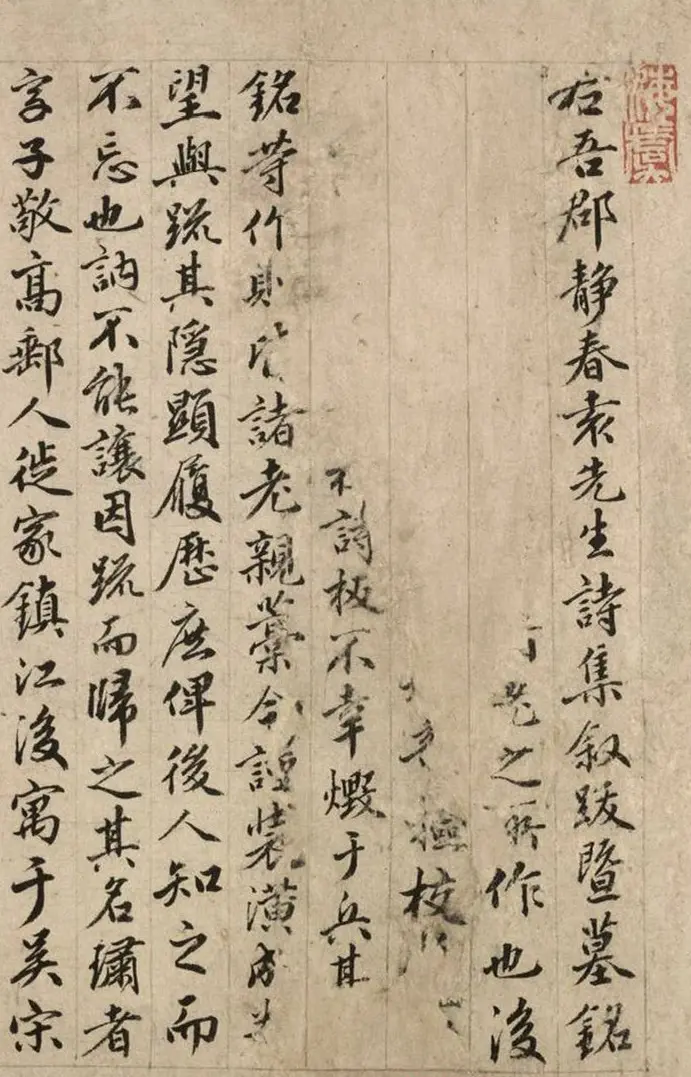 右吾郡靜春袁先生詩集叙跋暨墓銘
老之所作也後
檢校
不詩板不幸燬于兵其
銘等作則皆諸老親藁今謹装潢成
望與疏其隱顯履歷庶俾後人知之而
不忘也訥不能讓因疏而歸之其名璛者
字子敬高郵人徙家鎮江後寓于吴宋